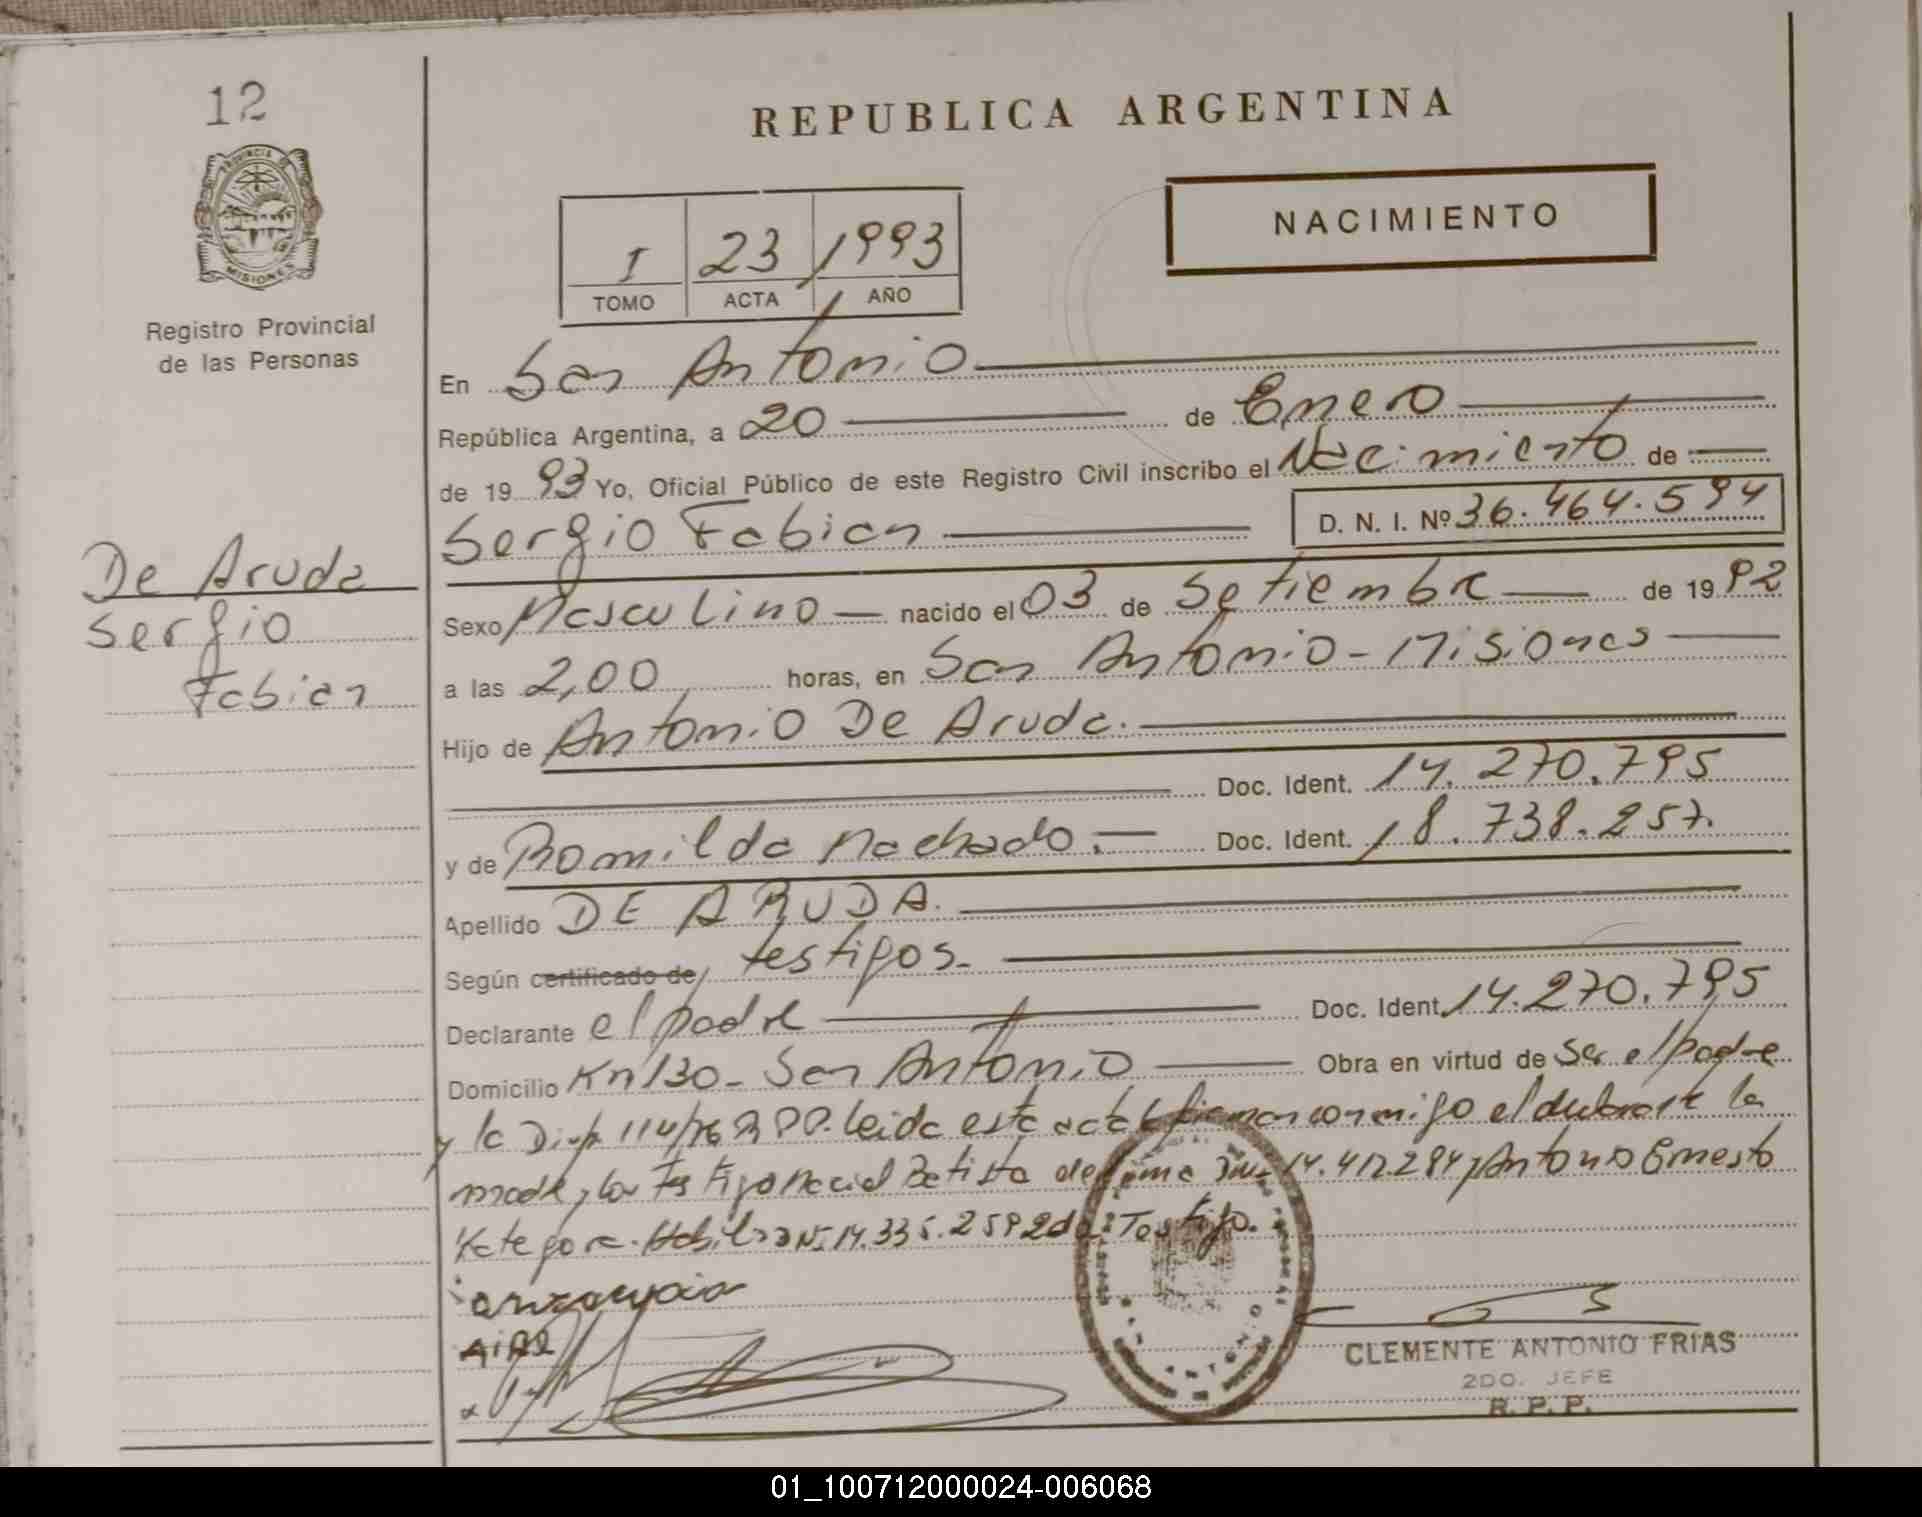 12
PROVINCIA DE
MISIONES
Registro Provincial
de las Personas
De Aruda
Sergio
Fabian
REPUBLICA ARGENTINA
NACIMIENTO
I 23 1993
TOMO ACTA AÑO
En San Antonio
República Argentina, a 20 de Enero
de 1993 Yo, Oficial Público de este Registro Civil inscribo el Nacimiento de
Sergio Fabian D. N. I. Nº 36.464.594
Sexo Masculino nacido el 03 de Setiembre de 1992
a las 2,00 horas, en San Antonio - Misiones
Hijo de Antonio De Aruda.
Doc. Ident. 14.270.795
y de Romilda Machado. Doc. Ident. 18.738.257.
Apellido DE ARUDA.
Según certificado de testigos.
Declarante el padre Doc. Ident. 14.270.795
Domicilio Km 130 - San Antonio Obra en virtud de Ser el padre
y la Disp. 114/76 RPP. leida esta acta firman conmigo el declarante la
madre, los Testigo Batista de Lima 14.417.284 y Antonio Ernesto
14.335.259 2do. Testigo.
CLEMENTE ANTONIO FRIAS
2DO. JEFE
R. P. P.
01_100712000024-006068